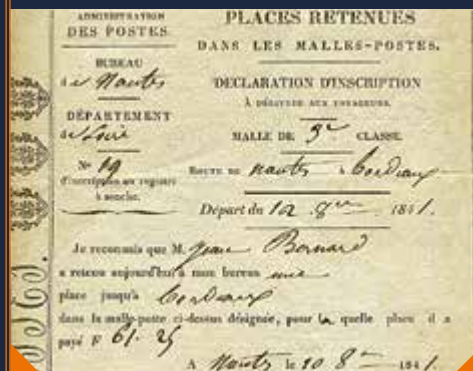 ADMINISTRATION
DES POSTES.
BUREAU
de Nantes
DÉPARTEMENT
de Loire
N° 19
d'inscription au registre
à souche.
PLACES RETENUES
DANS LES MALLES-POSTES.
DÉCLARATION D'INSCRIPTION
À DÉLIVRER AUX VOYAGEURS.
MALLE DE 3e CLASSE.
ROUTE DE Nantes à Bordeaux
Départ du 12 8bre 1841.
Je reconnais que M. Jean Bernard
a retenu aujourd'hui à mon bureau une
place jusqu'à Bordeaux
dans la malle-poste ci-dessus désignée, pour la quelle place il a
payé F 61. 25
A Nantes le 10 8bre 1841.